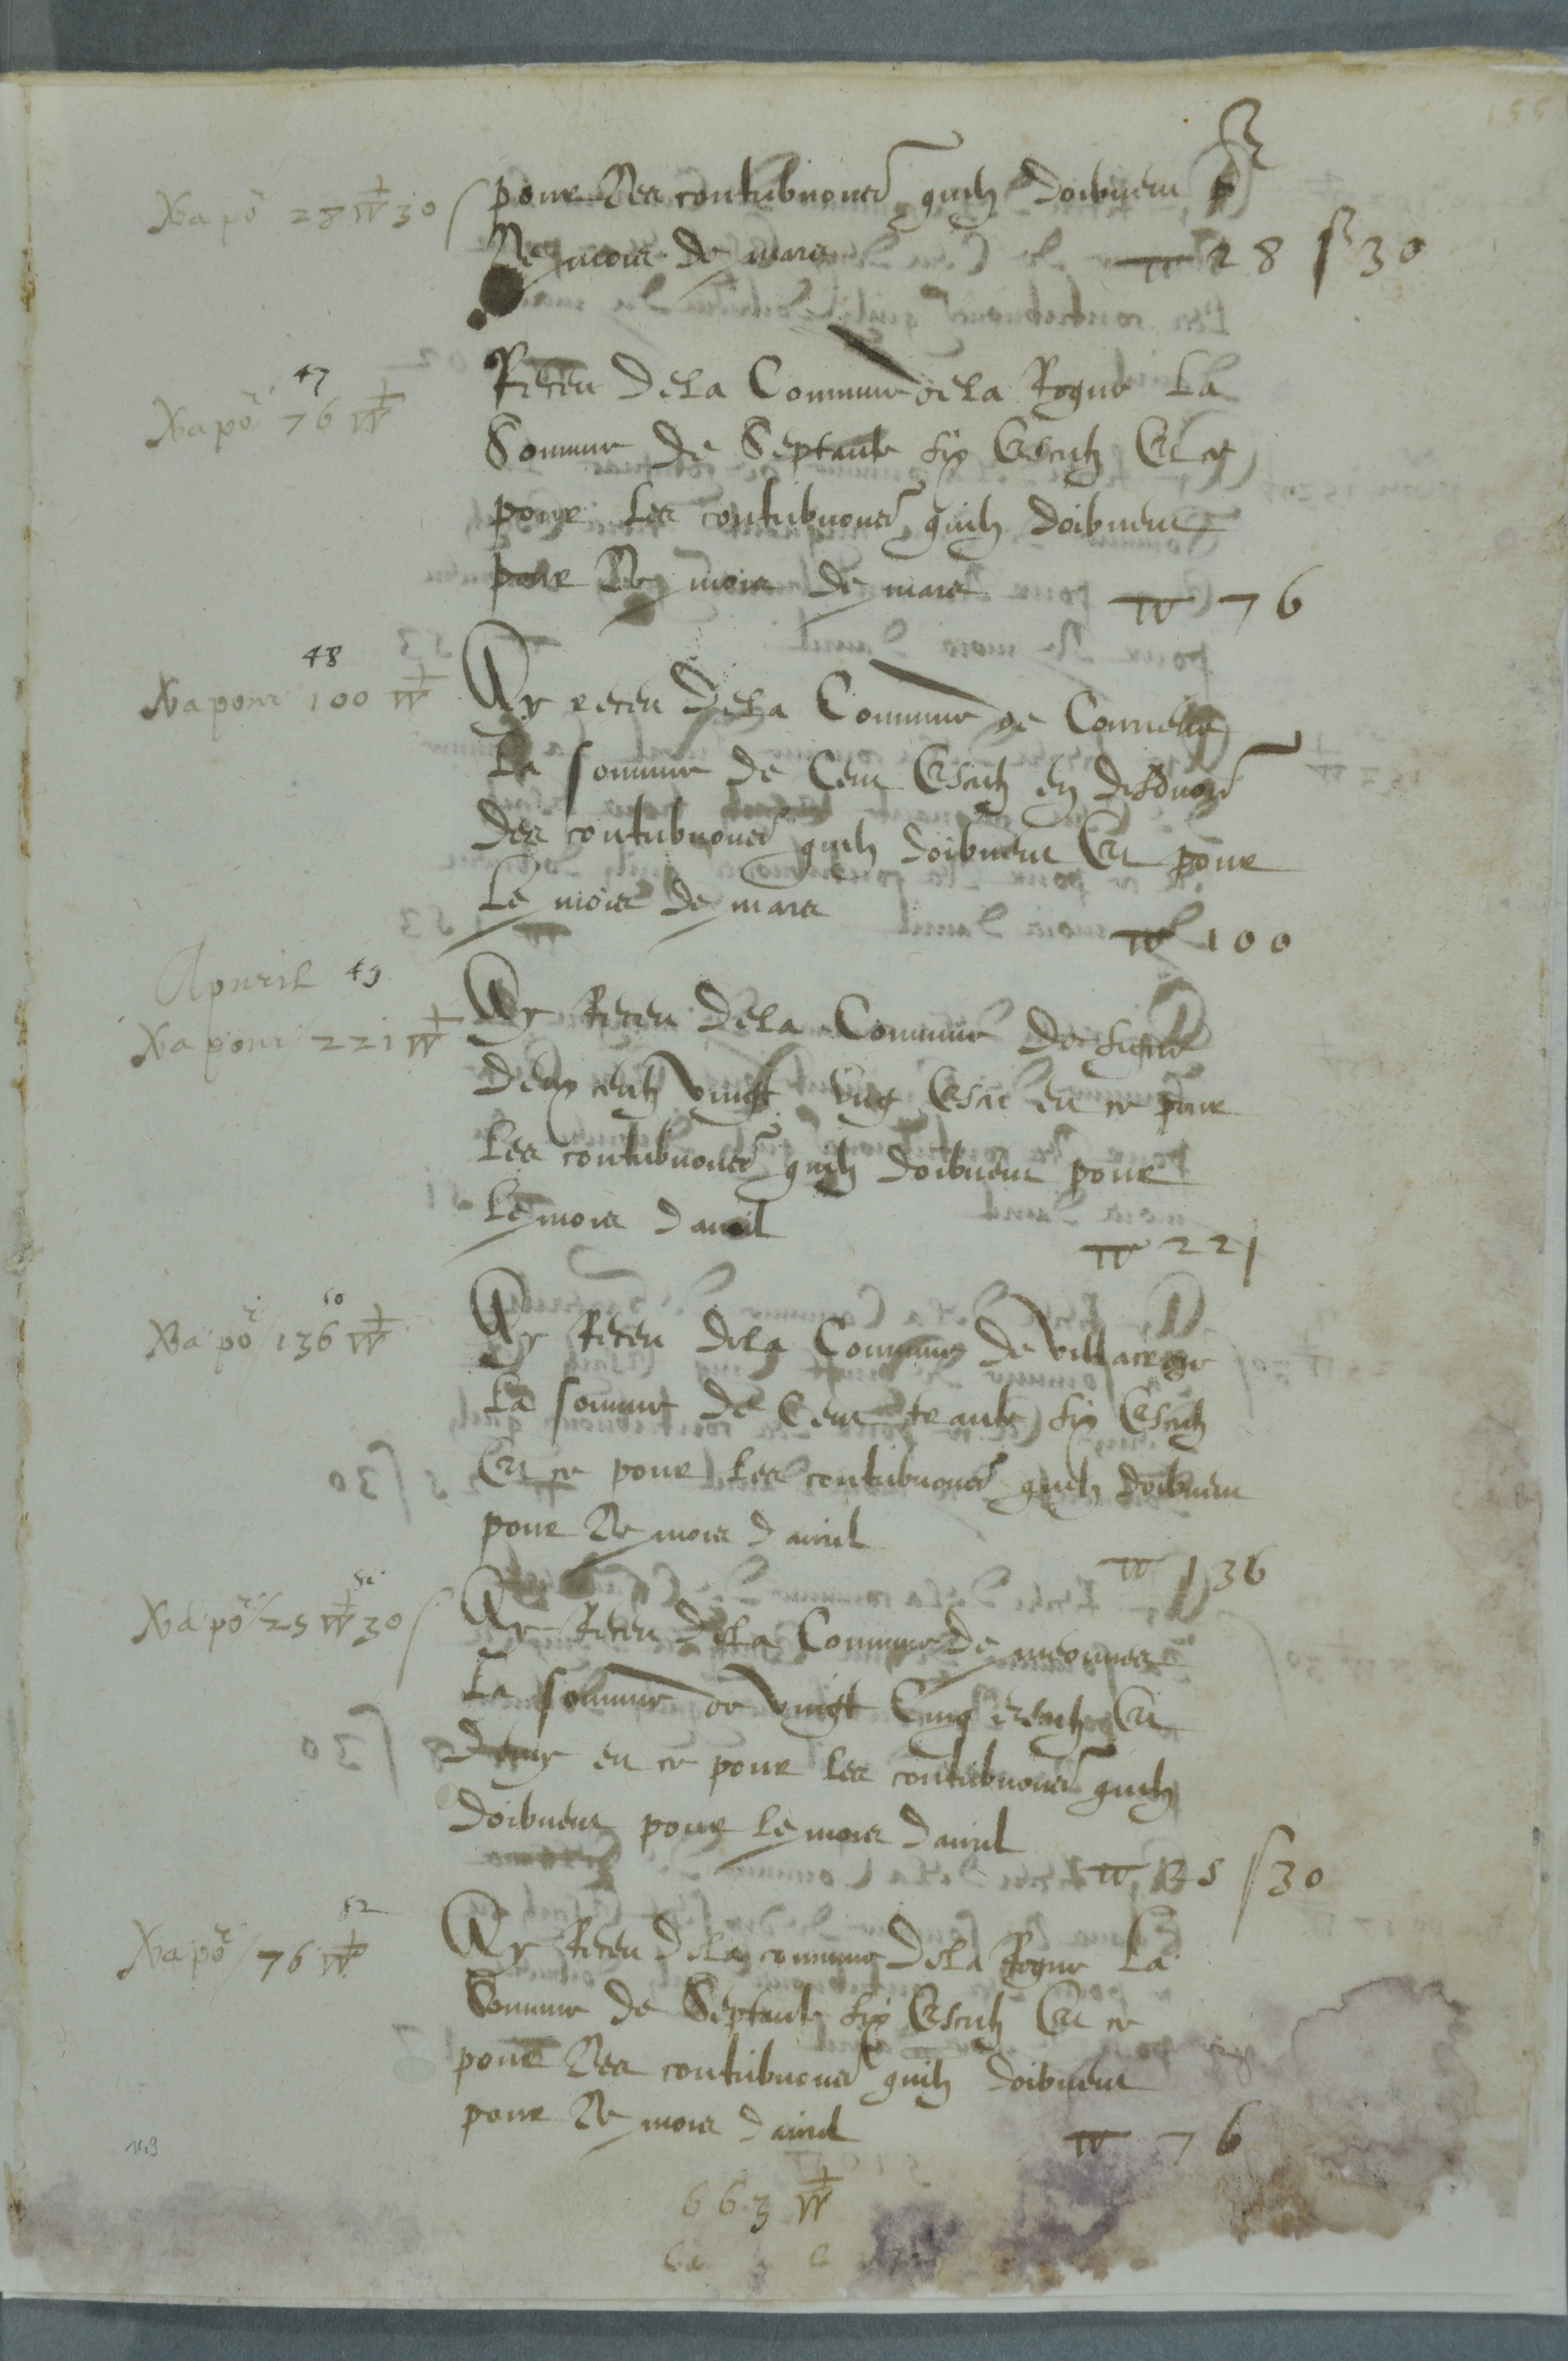 Va po 28 ▽ 30 s
pour les contribuones quilz doibuent p
le mois de mars ▽ 28 s 30
47
Va po 76 ▽
Receu de la Commune de la Rogue La
Somme de Septante six Escutz Et ce
pour les contribuones quilz doibuent
pour le mois de mars ▽ 76
48
Va pour 100 ▽
Ay receu de la Commune de
La somme de Cent Escutz en
des contribuones quilz doibuent Et pour
Le mois de mars
▽ 100
Apuril 49
Va pour 221 ▽
Ay Receu de la Commune de
deux centz vingt ung Escu et ce pour
Les contribuones quilz doibuent pour
Le mois dauril
▽ 221
50
Va po 136 ▽
Ay Receu de la Commune de
La somme de Cent trante six Escutz
Et ce pour les contribuones quilz doibuent
pour le mois dauril
▽ 136
51
Va po 25 ▽ 30 s
Ay Receu de la Commune de meounes
La somme de vingt Cinq escutz Et
demy et ce pour les contribuones quilz
doibuent pour le mois dauril
▽ 25 s 30
52
Va po 76 ▽
Ay Receu de la commune de la Rogue La
Somme de Septante six Escutz Et ce
pour les contribuones quilz doibuent
pour le mois dauril
▽ 76
149
663 ▽